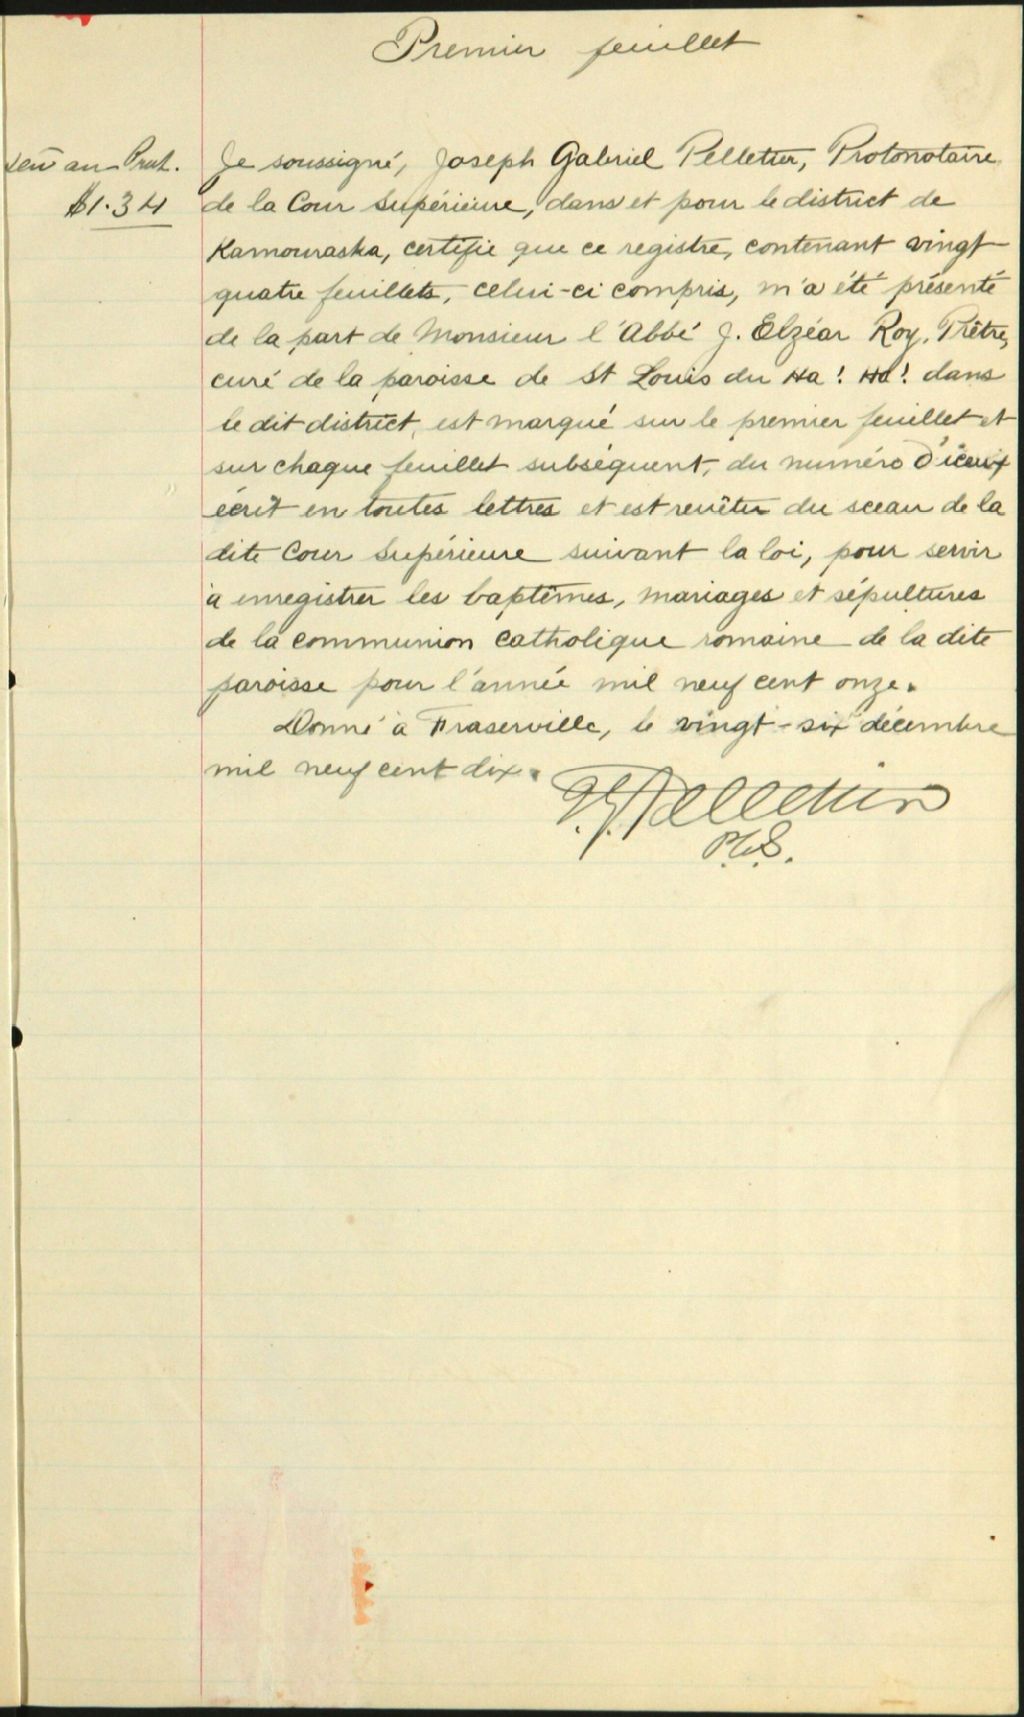 Premier feuillet
au Prot.
$1.34
Je soussigné, Joseph Gabriel Pelletier, Protonotaire
de la Cour Supérieure, dans et pour le district de
Kamouraska, certifie que ce registre, contenant vingt
quatre feuillets, celui-ci compris, m'a été présenté
de la part de Monsieur l'Abbé J. Elzéar Roy, Prêtre,
curé de la paroisse de St Louis du Ha! Ha! dans
le dit district, est marqué sur le premier feuillet et
sur chaque feuillet subséquent, du numéro d'iceux
écrit en toutes lettres et est revêtu du sceau de la
dite Cour Supérieure suivant la loi, pour servir
à enregistrer les baptêmes, mariages et sépultures
de la communion Catholique romaine de la dite
paroisse pour l'année mil neuf cent onze.
Donné à Fraserville, le vingt-six décembre
mil neuf cent dix.
J. G. Pelletier
P.C.S.